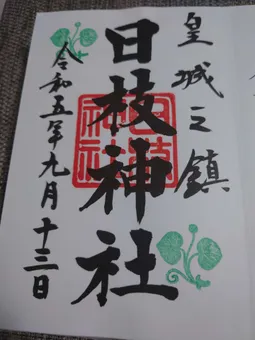 皇城之鎮
日枝神社
令和五年九月十三日